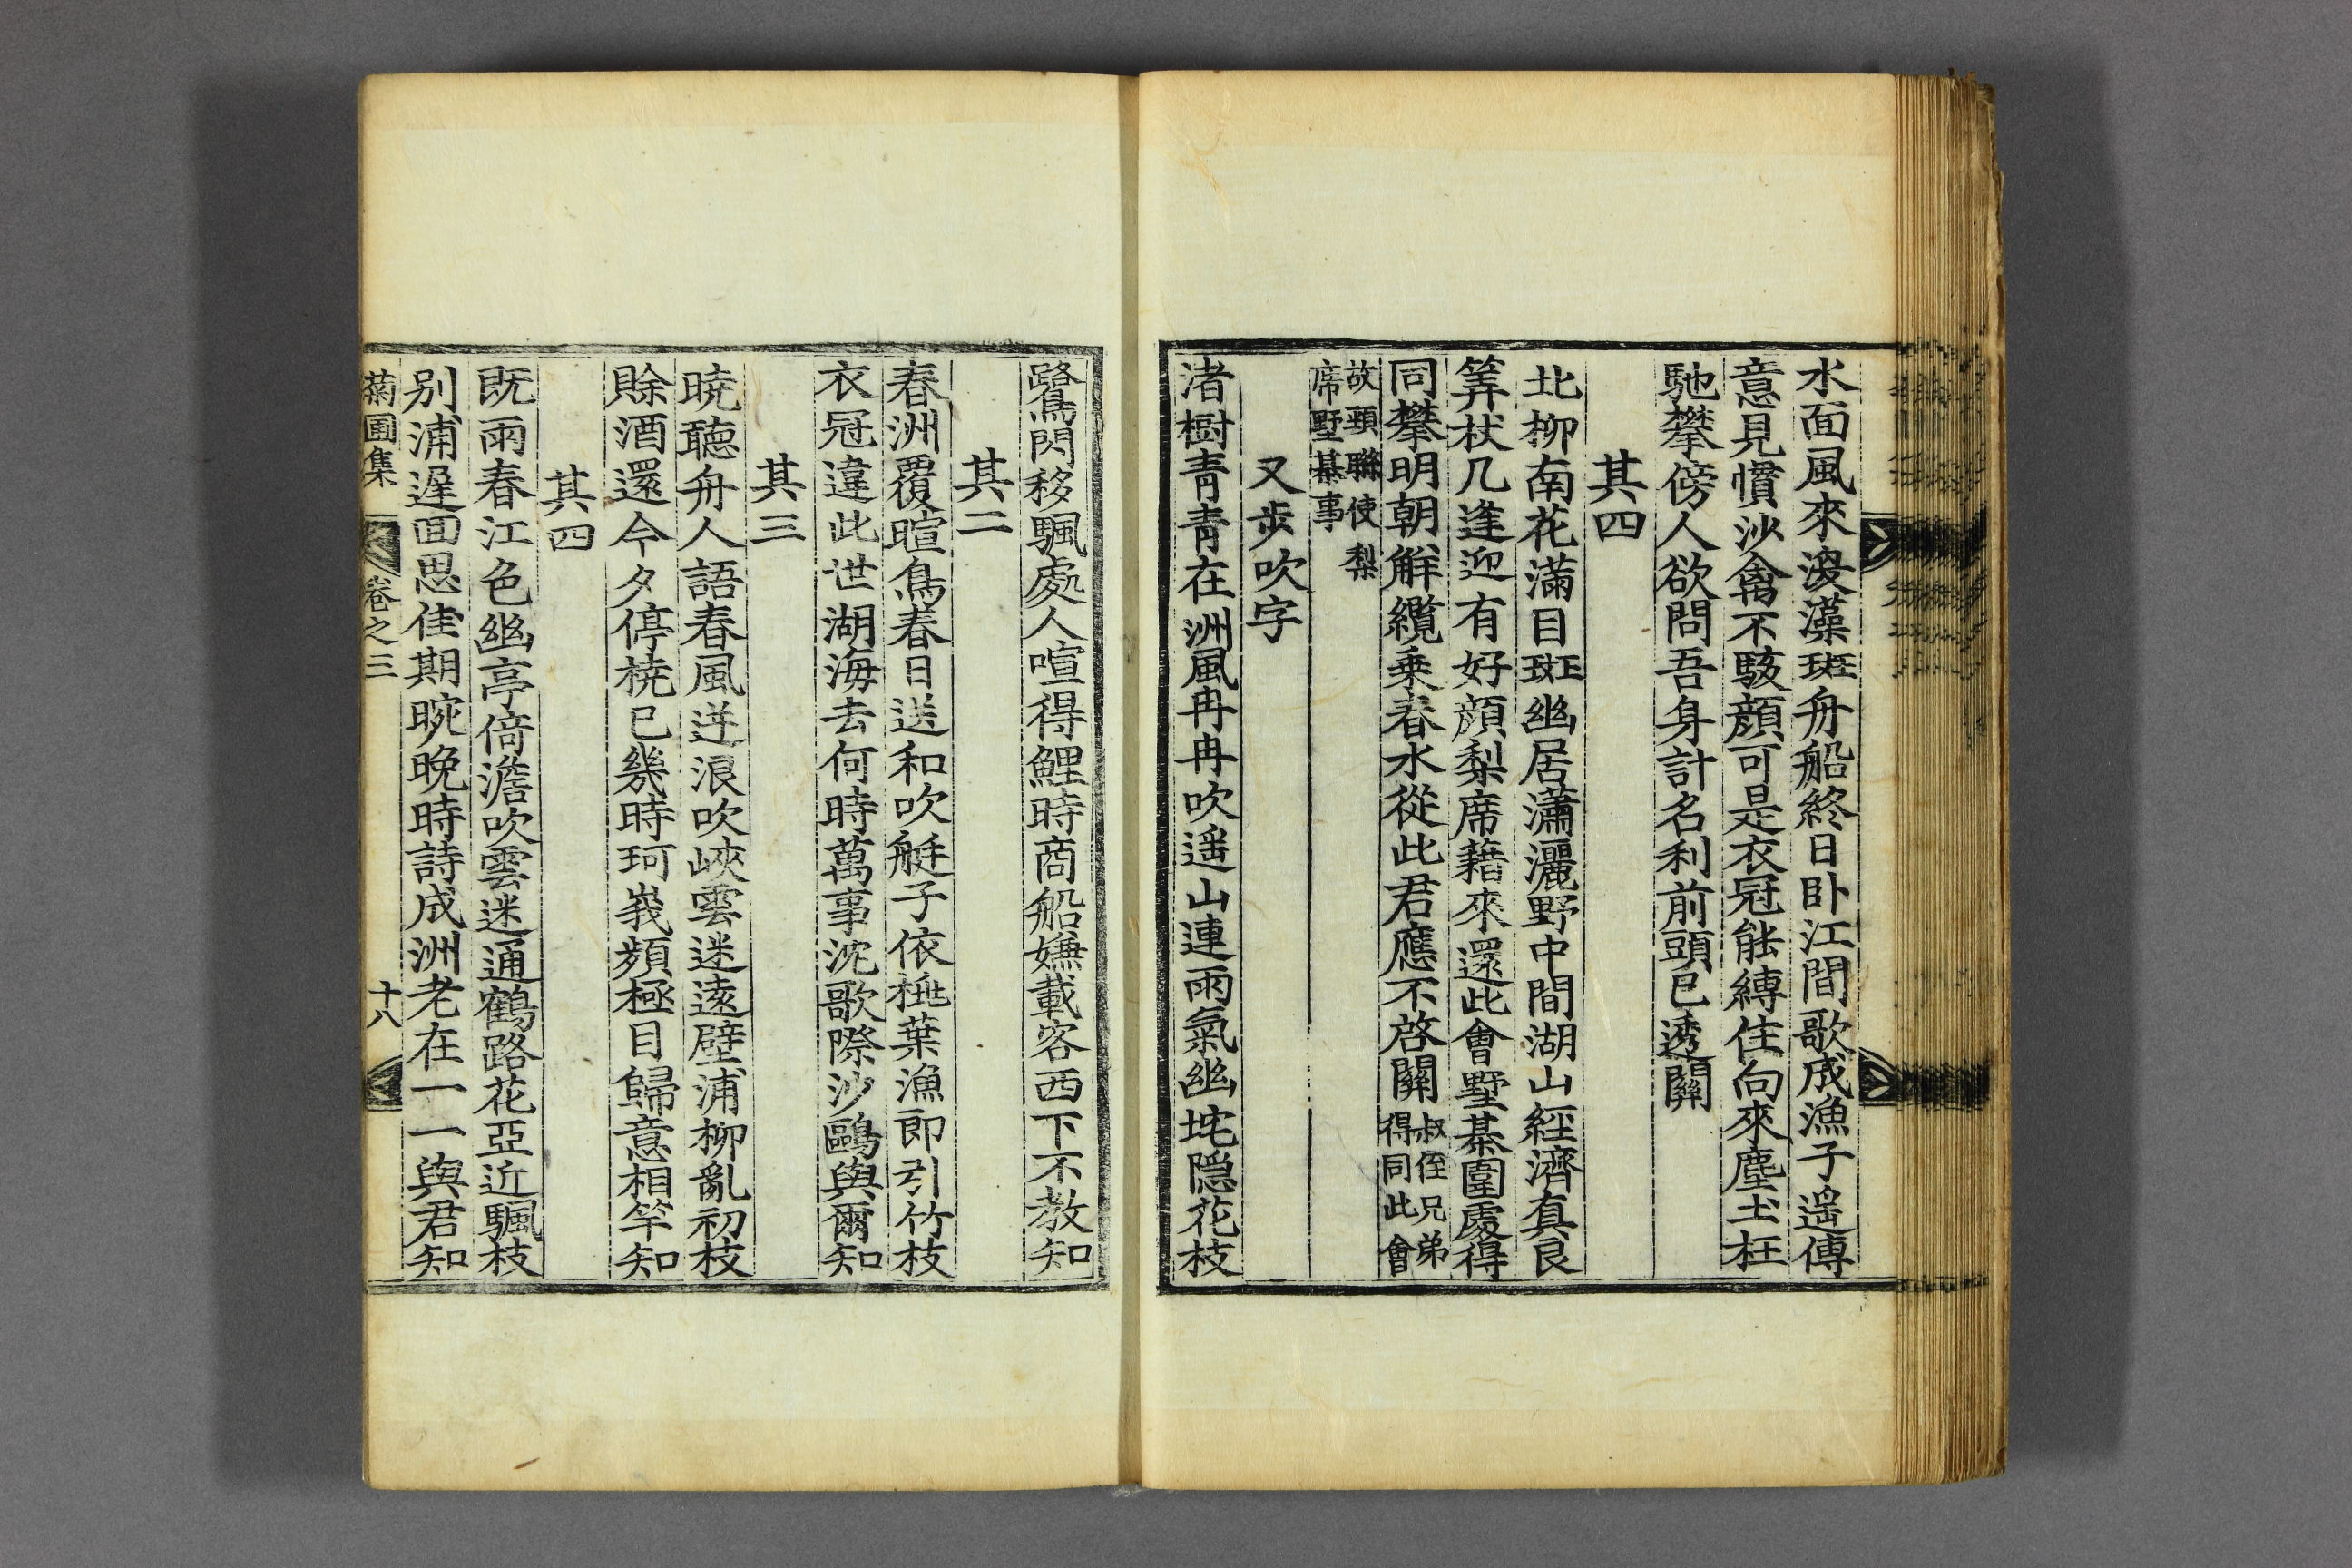 水面風來浪藻斑舟船終日卧江間歌成漁子遥傳
意見慣沙禽不駭顔可是衣冠能縛住向來塵土枉
馳攀傍人欲問吾身計名利前頭已透關
其四
北柳南花滿目斑幽居瀟灑野中間湖山經濟真良
筭杖几逢迎有好顔梨席藉來還此會墅碁圍處得
同攀明朝觧纜乗春水從此君應不啓關
叔侄兄弟
得同此會
故頸聯使梨
席墅碁事
又步吹字
渚樹青青在洲風冉冉吹遥山連雨氣幽坨隠花枝
鷺閃移颿處人喧得鯉時商船嫌載客西下不教知
其二
春洲覆暄鳥春日送和吹艇子依桃葉漁郎引竹枝
衣冠違此世湖海去何時萬事沈歌際沙鷗與爾知
其三
曉聽舟人語春風逆浪吹峽雲迷遠壁浦柳亂初枝
賖酒還今夕停橈已幾時珂峩頻極目歸意相竿知
其四
既雨春江色幽亭倚澹吹雲迷通鶴路花亞近颿枝
别浦遲回思佳期晼晚時詩成洲老在一一與君知
菊圃集 卷之三 十八